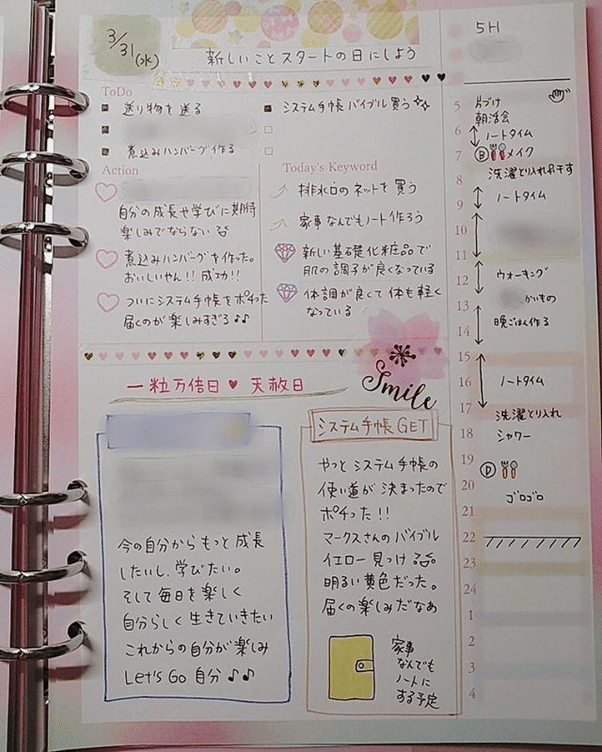 3/31(水)
新しいことスタートの日にしよう
ToDo
送り物を送る
煮込みハンバーグ作る
システム手帳バイブル買う
Action
自分の成長や学びに期待
楽しみでならない
煮込みハンバーグを作った。
おいしいやん!! 成功!!
ついにシステム手帳をポチった
届くのが楽しみすぎる♪♪
Today's Keyword
排水口のネットを買う
家事なんでもノート作ろう
新しい基礎化粧品で
肌の調子が良くなっている
体調が良くて体も軽く
なっている
一粒万倍日 ♥ 天赦日
Smile
今の自分からもっと成長
したいし、学びたい。
そして毎日を楽しく
自分らしく生きていきたい
これからの自分が楽しみ
Let's Go 自分 ♪♪
システム手帳 GET
やっとシステム手帳の
使い道が決まったので
ポチった!!
マークスさんのバイブル
イエロー見っけ
明るい黄色だった。
届くの楽しみだなあ
家事
なんでも
ノートに
する予定
5H
5 片づけ
朝活会
6 ノートタイム
7 B メイク
洗濯とり入れ干す
8
9 ノートタイム
10
11
12 ウォーキング
13 かいもの
晩ごはん作る
14
15
16 ノートタイム
17 洗濯とり入れ
18 シャワー
19 D
20 ゴロゴロ
21
22
23
24
1
2
3
4